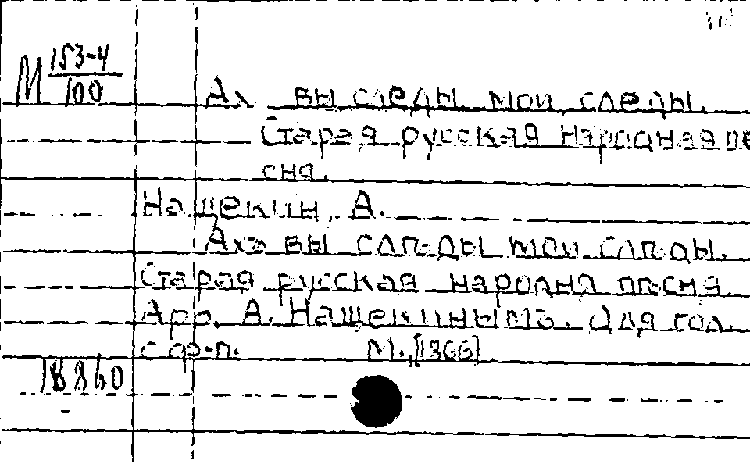 М 153-4/100
Ах вы следы мои следы.
Старая русская народная пе
сня.
Нащекин, А.
Ахъ вы слѣды мои слѣды.
Старая русская народна пѣсня.
Арр. А. Нащекинымъ. Для гол.
с ф-п. М., [1866]
18860